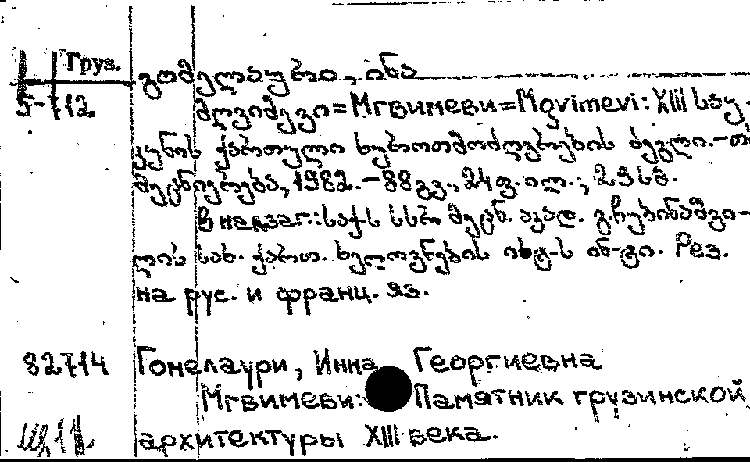 Груз.
გომელაური, ინა
5-712.
მღვიმევი=Мгвимеви=Mgvimevi: XIII საუ-
კუნის ქართული ხუროთმოძღვრების ძეგლი.-თბ.:
მეცნიერება, 1982.-88გვ., 24 ფ. ილ.; 29სმ.
В надзаг.: საქ.ს სსრ მეცნ. აკად. გ.ჩუბინაშვი-
ლის სახ. ქართ. ხელოვნების ისტ-ს ინ-ტი. Рез.
на рус. и франц. яз.
82714 Гомелаури, Инна Георгиевна
Мгвимеви: Памятник грузинской
архитектуры XIII века.